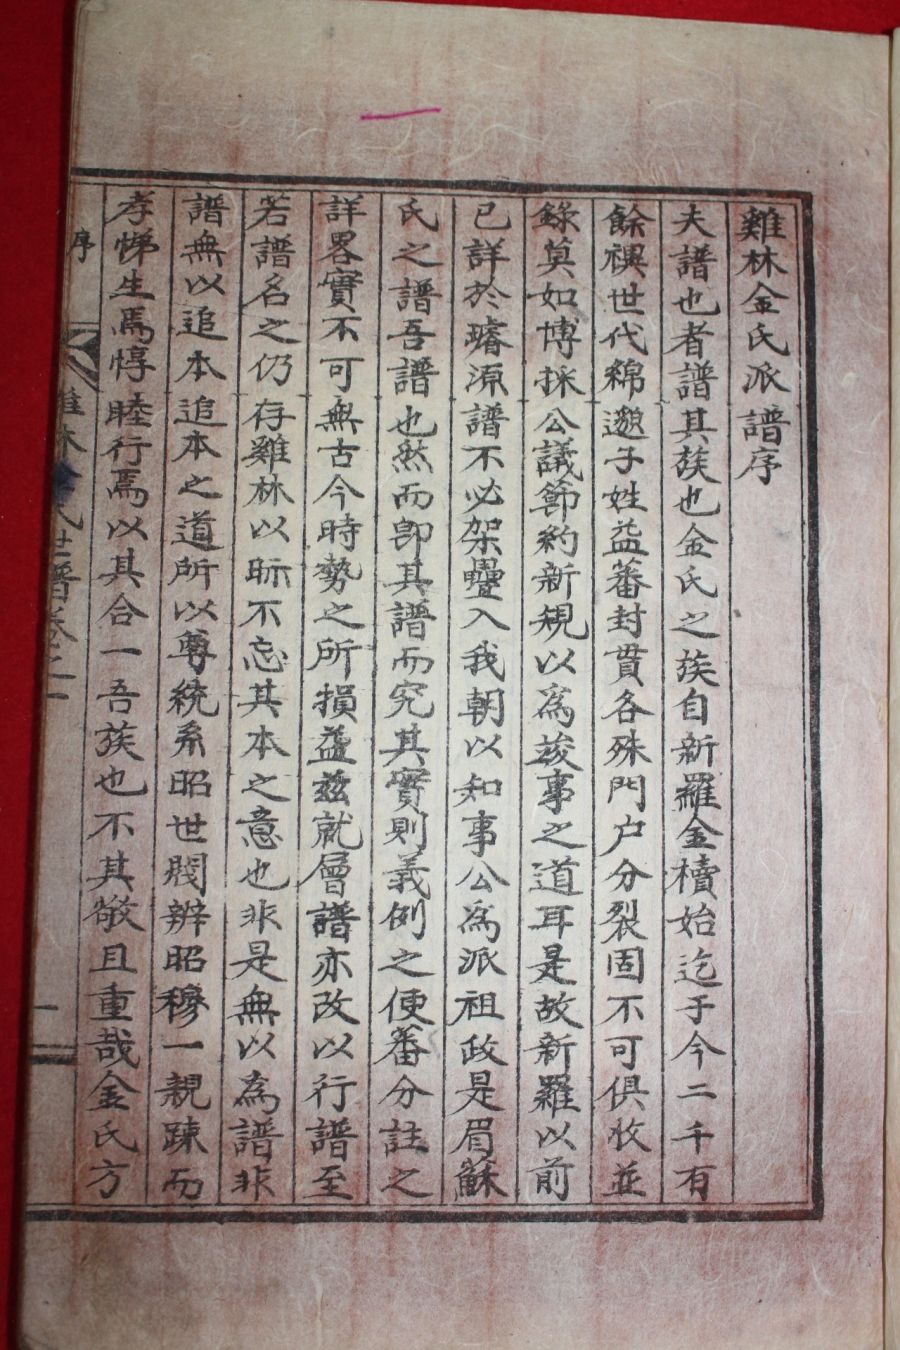 雞林金氏派譜序
夫譜也者譜其族也金氏之族自新羅金櫝始迄于今二千有
餘禩世代綿邈子姓益蕃封貫各殊門户分裂固不可俱收並
錄莫如博採公議節約新規以爲竣事之道耳是故新羅以前
已詳於璿源譜不必架疊入我朝以知事公爲派祖政是眉蘇
氏之譜吾譜也然而卽其譜而究其實則義例之便蕃分註之
詳畧實不可無古今時勢之所損益玆就層譜亦改以行譜至
若譜名之仍存雞林以眎不忘其本之意也非是無以為譜非
譜無以追本追本之道所以尊統系昭世閥辨昭穆一親踈而
孝悌生焉惇睦行焉以其合一吾族也不其敬且重哉金氏方
序
雞林金氏世譜卷之一
一